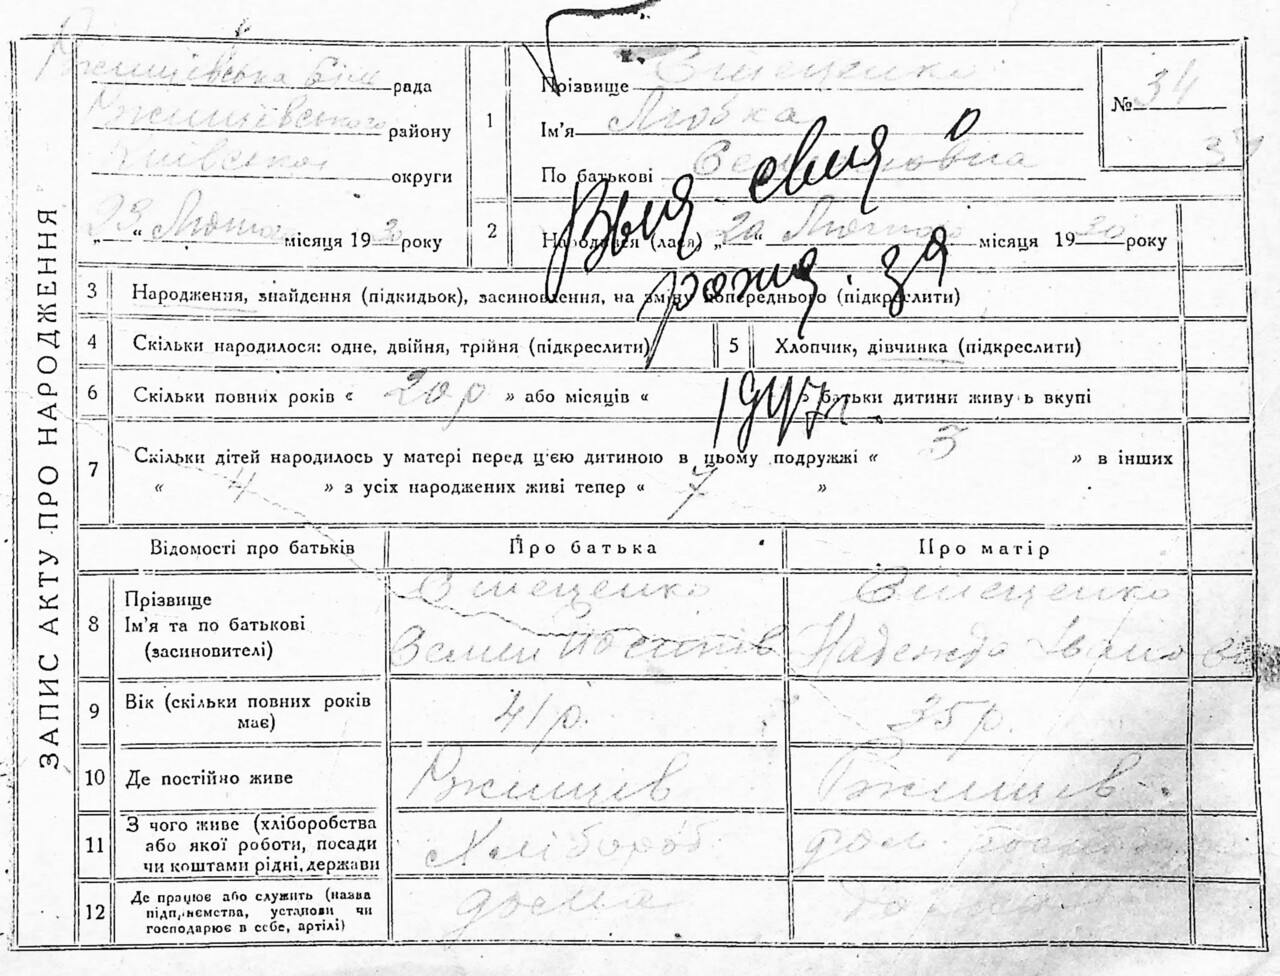 ЗАПИС АКТУ ПРО НАРОДЖЕННЯ
Ржищівська рада
Ржищівського району
Київської округи
„23“ Лютого місяця 1930 року
1
Прізвище Стеценко
Ім'я Любка
По батькові Семеновна
№ 34
2
Народився (лася) „20“ Лютого місяця 1930 року
Выд свид о
рожд. зя
1947г.
3 Народження, знайдення (підкидьок), засиновлення, на зміну попереднього (підкреслити)
4 Скільки народилося: одне, двійня, трійня (підкреслити)
5 Хлопчик, дівчинка (підкреслити)
6 Скільки повних років « 20р » або місяців « батьки дитини живуть вкупі
7 Скільки дітей народилось у матері перед ц'єю дитиною в цьому подружжі « 3 » в інших
« 4 » з усіх народжених живі тепер « 7 »
Відомості про батьків Про батька Про матір
8 Прізвище
Ім'я та по батькові
(засиновителі)
Стеценко
Семен
Стеценко
Надежда Івановна
9 Вік (скільки повних років
має)
41р. 35р.
10 Де постійно живе Ржищев Ржищев
11 З чого живе (хліборобства
або якої роботи, посади
чи коштами рідні, держави
Хлібороб дом.
12 Де працює або служить (назва
підприємства, установи чи
господарює в себе, артілі)
дома дома